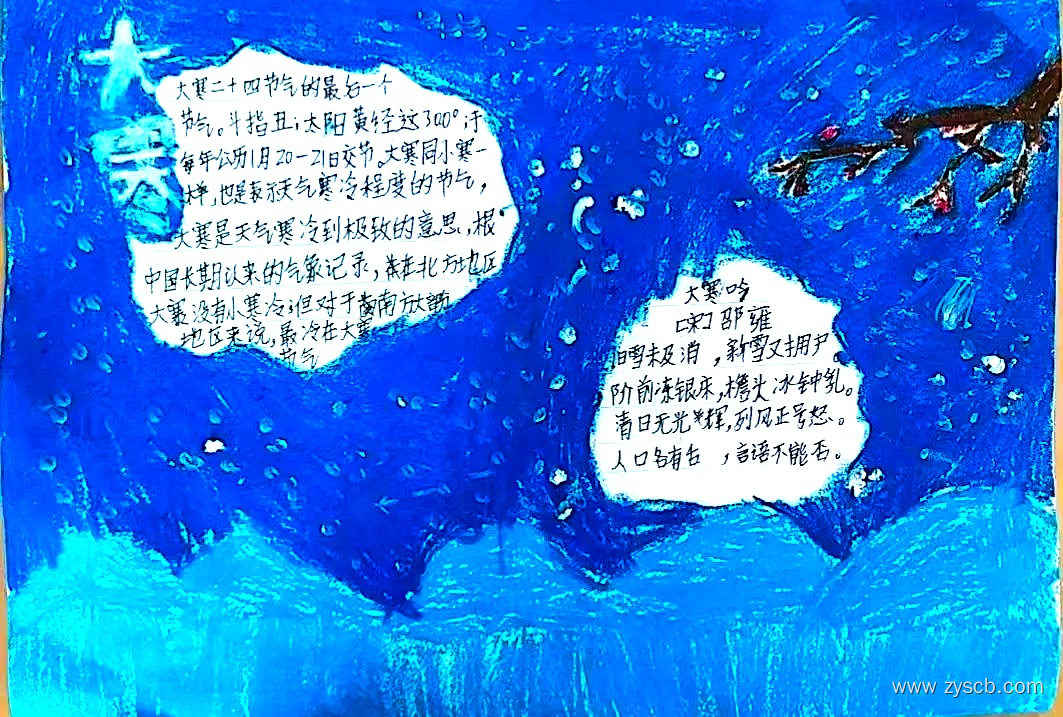 大寒
大寒二十四节气的最后一个
节气。斗指丑;太阳黄经达300°;于
每年公历1月20-21日交节。大寒同小寒一
样,也是表示天气寒冷程度的节气,
大寒是天气寒冷到极致的意思,根
中国长期以来的气象记录,在北方地区
大寒没有小寒冷;但对于南方
地区来说,最冷在大寒
节气
大寒吟
[宋]邵雍
旧雪未及消,新雪又拥户。
阶前冻银床,檐头冰钟乳。
清日无光辉,列风正号怒。
人口各有舌,言语不能否。
www.zyscb.com